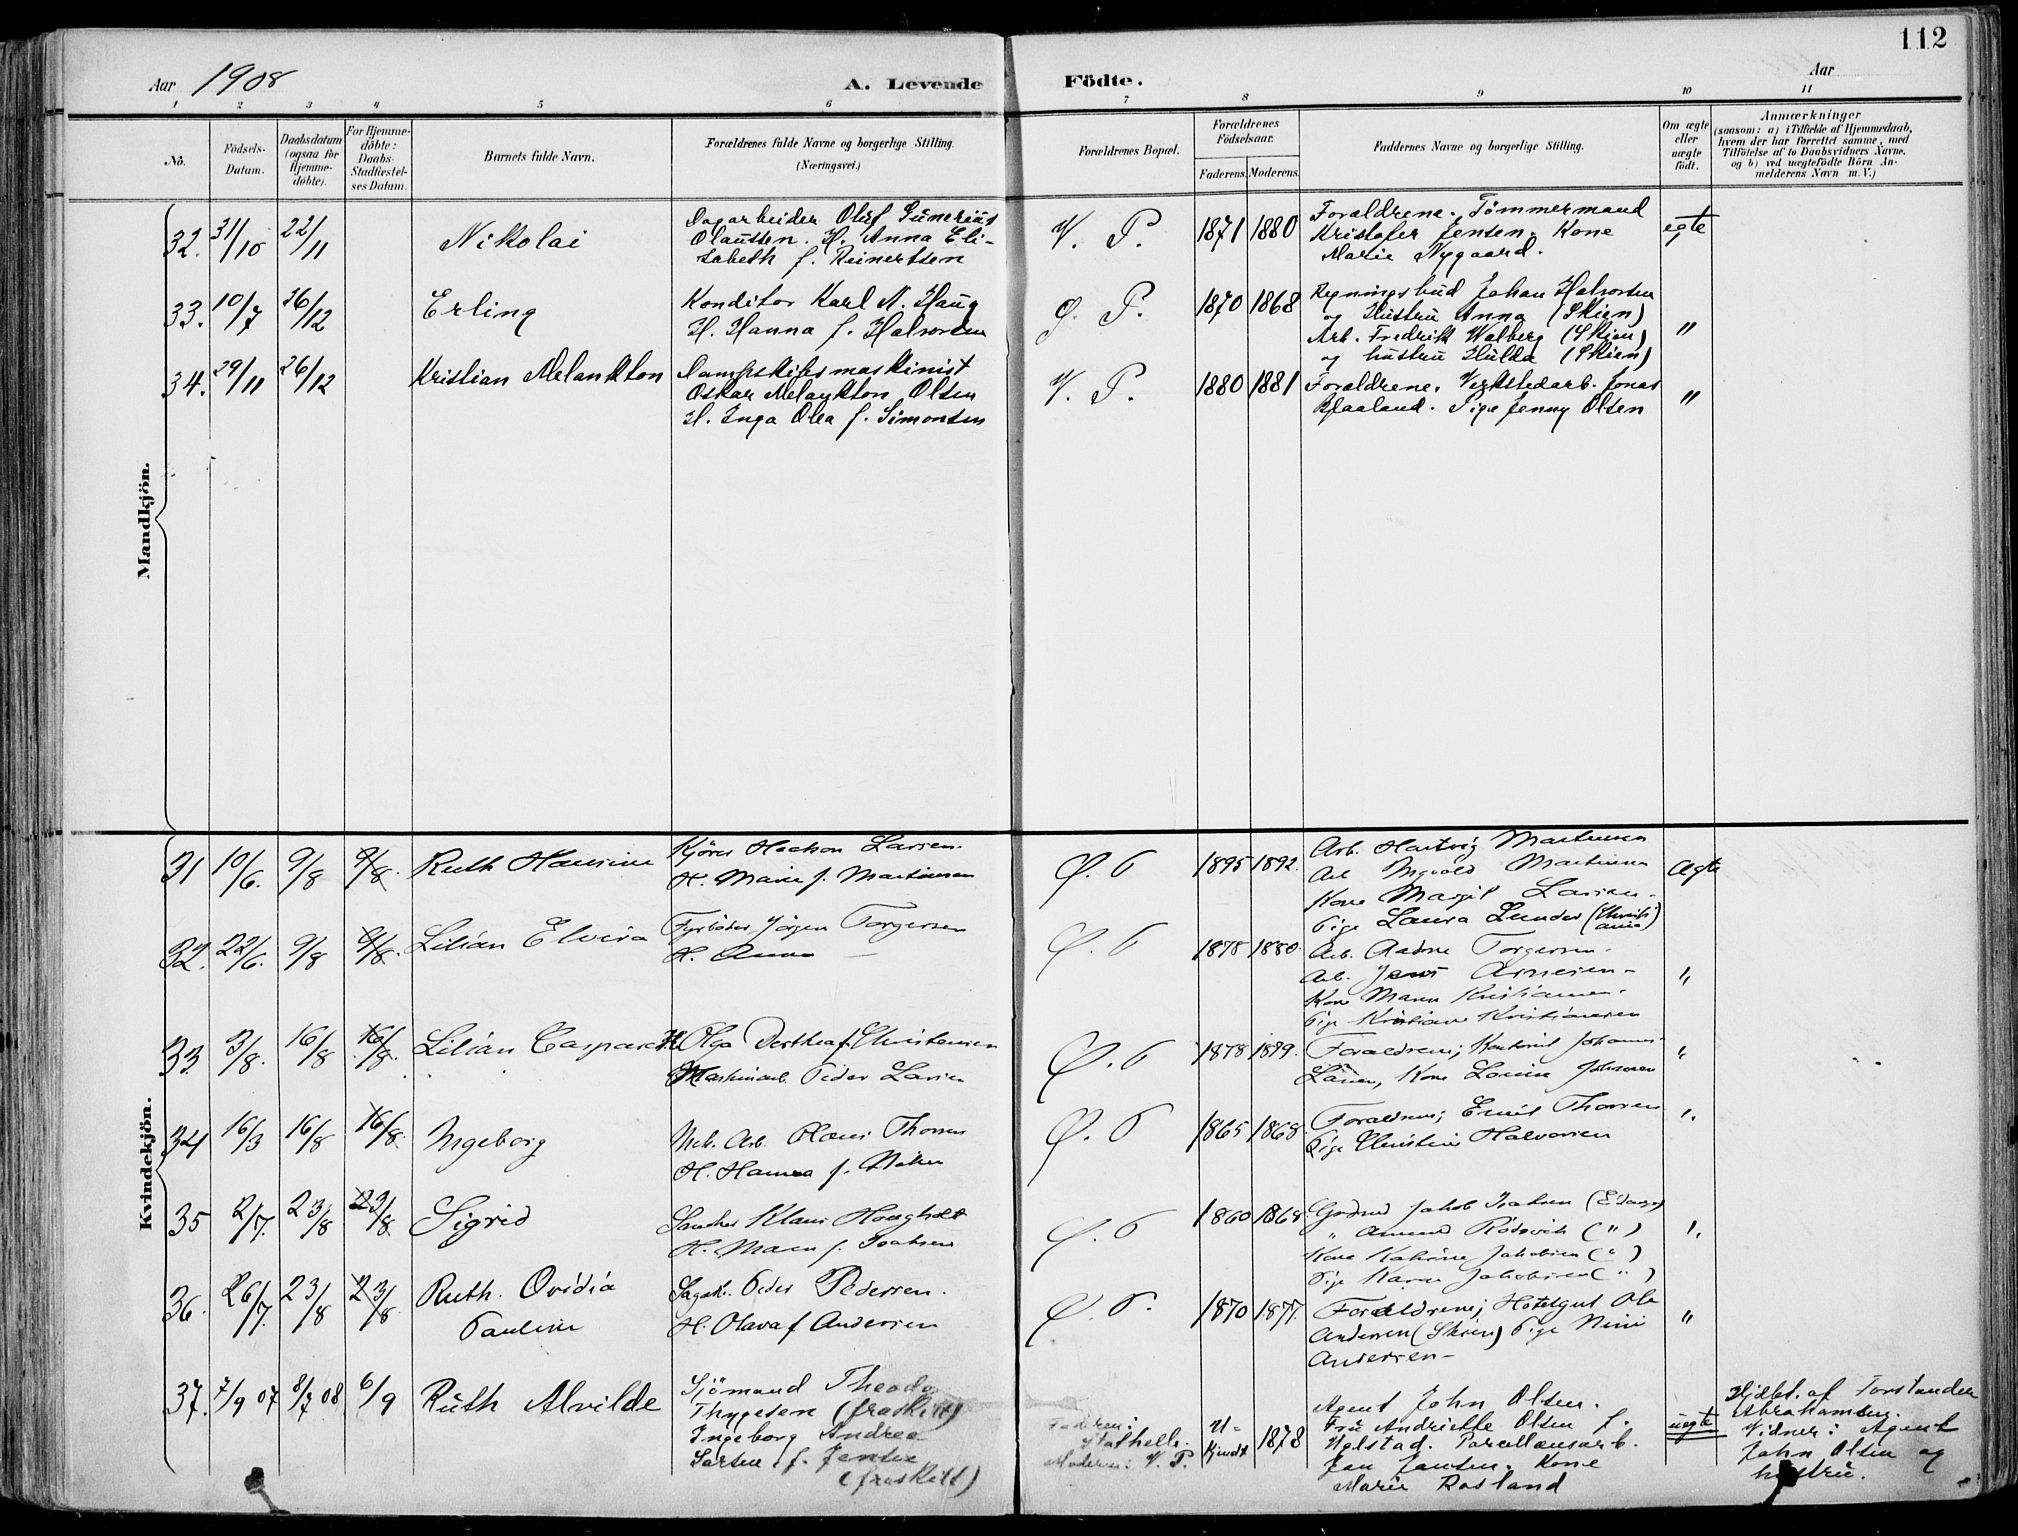 112
Aar 1908
A. Levende Födte.
Aar
1 2 3 4 5 6 7 8 9 10 11
No.
Födsels-Datum.
Daabsdatum (ogsaa for Hjemmedöbte).
For Hjemmedöbte: Daabs-Stadfæstelses Datum.
Barnets fulde Navn.
Forældrenes fulde Navne og borgerlige Stilling.
(Næringsvei.)
Forældrenes Bopæl.
Forældrenes Födselsaar.
Faderens. Moderens.
Faddernes Navne og borgerlige Stilling.
Om ægte eller uægte födt.
Anmærkninger
(saasom: a) i Tilfælde af Hjemmedaab,
hvem der har forrettet samme, med
Tilföielse af to Daabsvidners Navne,
og b) ved uægtefödte Börn An-
melderens Navn m. V.)
Mandkjön.
32. 31/10 22/11 Nikolai
Dagarbeider Olef Gunerius
Olaussen. H. Anna Eli-
sabeth f. Reinertsen
V. P. 1871 1880
Forældrene. Tömmermand
Kristofer Jensen. Kone
Marie Nygaard.
egte
33. 10/7 26/12 Erling
Konditor Karl N. Haug
H. Hanna f. Halvorsen
Ø. P. 1870 1868
Regningsbud Johan Halvorsen
og Hustru Anna (Skien)
Arb. Fredrik Walberg (Skien)
og hustru Hulda (Skien)
"
34. 29/11 26/12 Kristian Melankton
Dampskibsmaskinist
Oskar Melankton Olsen
H. Inga Olea f. Simonsen
V. P. 1880 1881
Forældrene. Verkstedarb. Jonas
Bjaaland. Pige Jenny Olsen
"
Kvindekjön.
31 10/6. 9/8 9/8. Ruth Hansine
Kjörer Larsen.
H. Marie f. Martinsen
Ø. P 1895 1892.
Arb. Hartvig Martinsen
Arb Martinsen
Kone Margit Larsen.
Pige Laura Lunder (Christiania)
Ægte
32. 22/6. 9/8 9/8. Lilian Elvira
Fyrböder Jörgen Torgersen
H. Anna —
Ø. P 1878 1880.
Arb. Torgersen.
Arb. Jens Arnesen -
Kone Maren Kristiansen.
Pige Kristiane Kristiansen
"
33. 3/8. 16/8 16/8. Lilian
H. Olga Dorthea f. Christensen
Maskinarb. Peder Larsen
Ø. P 1878 1879.
Forældrene; Johannes
Larsen, Kone Lovise Johnsen
"
34 16/3 16/8 16/8. Ingeborg
Mek. Arb. Thorsen
H. Hanna f.
Ø. P 1865 1868.
Forældrene; Emil Thorsen
Pige Christine Halvorsen
"
35 2/7. 23/8 23/8 Sigrid
Klaus
H. Maren f. Isaksen
Ø. P 1860 1868.
Gbrd Jakob Isaksen (Eidanger)
" Amund (")
Kone Katrine Jakobsen (")
Pige Karen Jakobsen (")
"
36. 26/7. 23/8 23/8. Ruth Ovidia
Pauline
Sagarb. Peder Pedersen.
H. Olava f Andersen
Ø. P. 1870 1877.
Forældrene; Hotelgut Ole
Andersen (Skien) Pige Nini
Andersen -
"
37. 7/9 07 8/7 08 6/9 Ruth Alvilde
Sjömand Theodor
Thygesen (fraskilt)
Ingeborg Andrea
Larsen f. Jensen
(fraskilt)
Faderen:
Stathelle.
Moderen: V. P.
U-
kjendt 1878
Agent John Olsen.
Fru Andriette Olsen f.
Helstad. Porcellænsarb.
Jan Jansen. Kone
Marie Rosland
uegte
Hjdbt. af Forstander
Abrahamsen.
Vidner: Agent
John Olsen og
hustru.